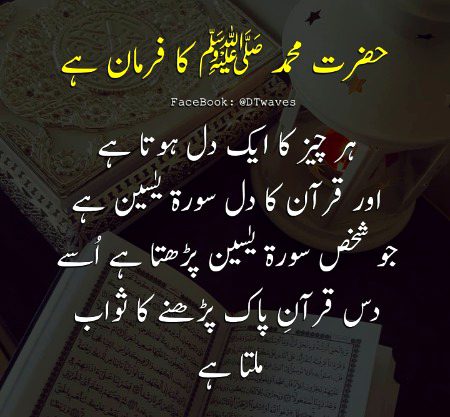 حضرت محمد ﷺ کا فرمان ہے
FaceBook: @DTwaves
ہر چیز کا ایک دل ہوتا ہے
اور قرآن کا دل سورۃ یٰسین ہے
جو شخص سورۃ یٰسین پڑھتا ہے اُسے
دس قرآنِ پاک پڑھنے کا ثواب
ملتا ہے